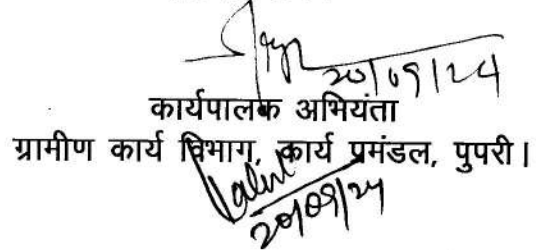 20/09/24
कार्यपालक अभियंता
ग्रामीण कार्य विभाग, कार्य प्रमंडल, पुपरी।
20/09/24